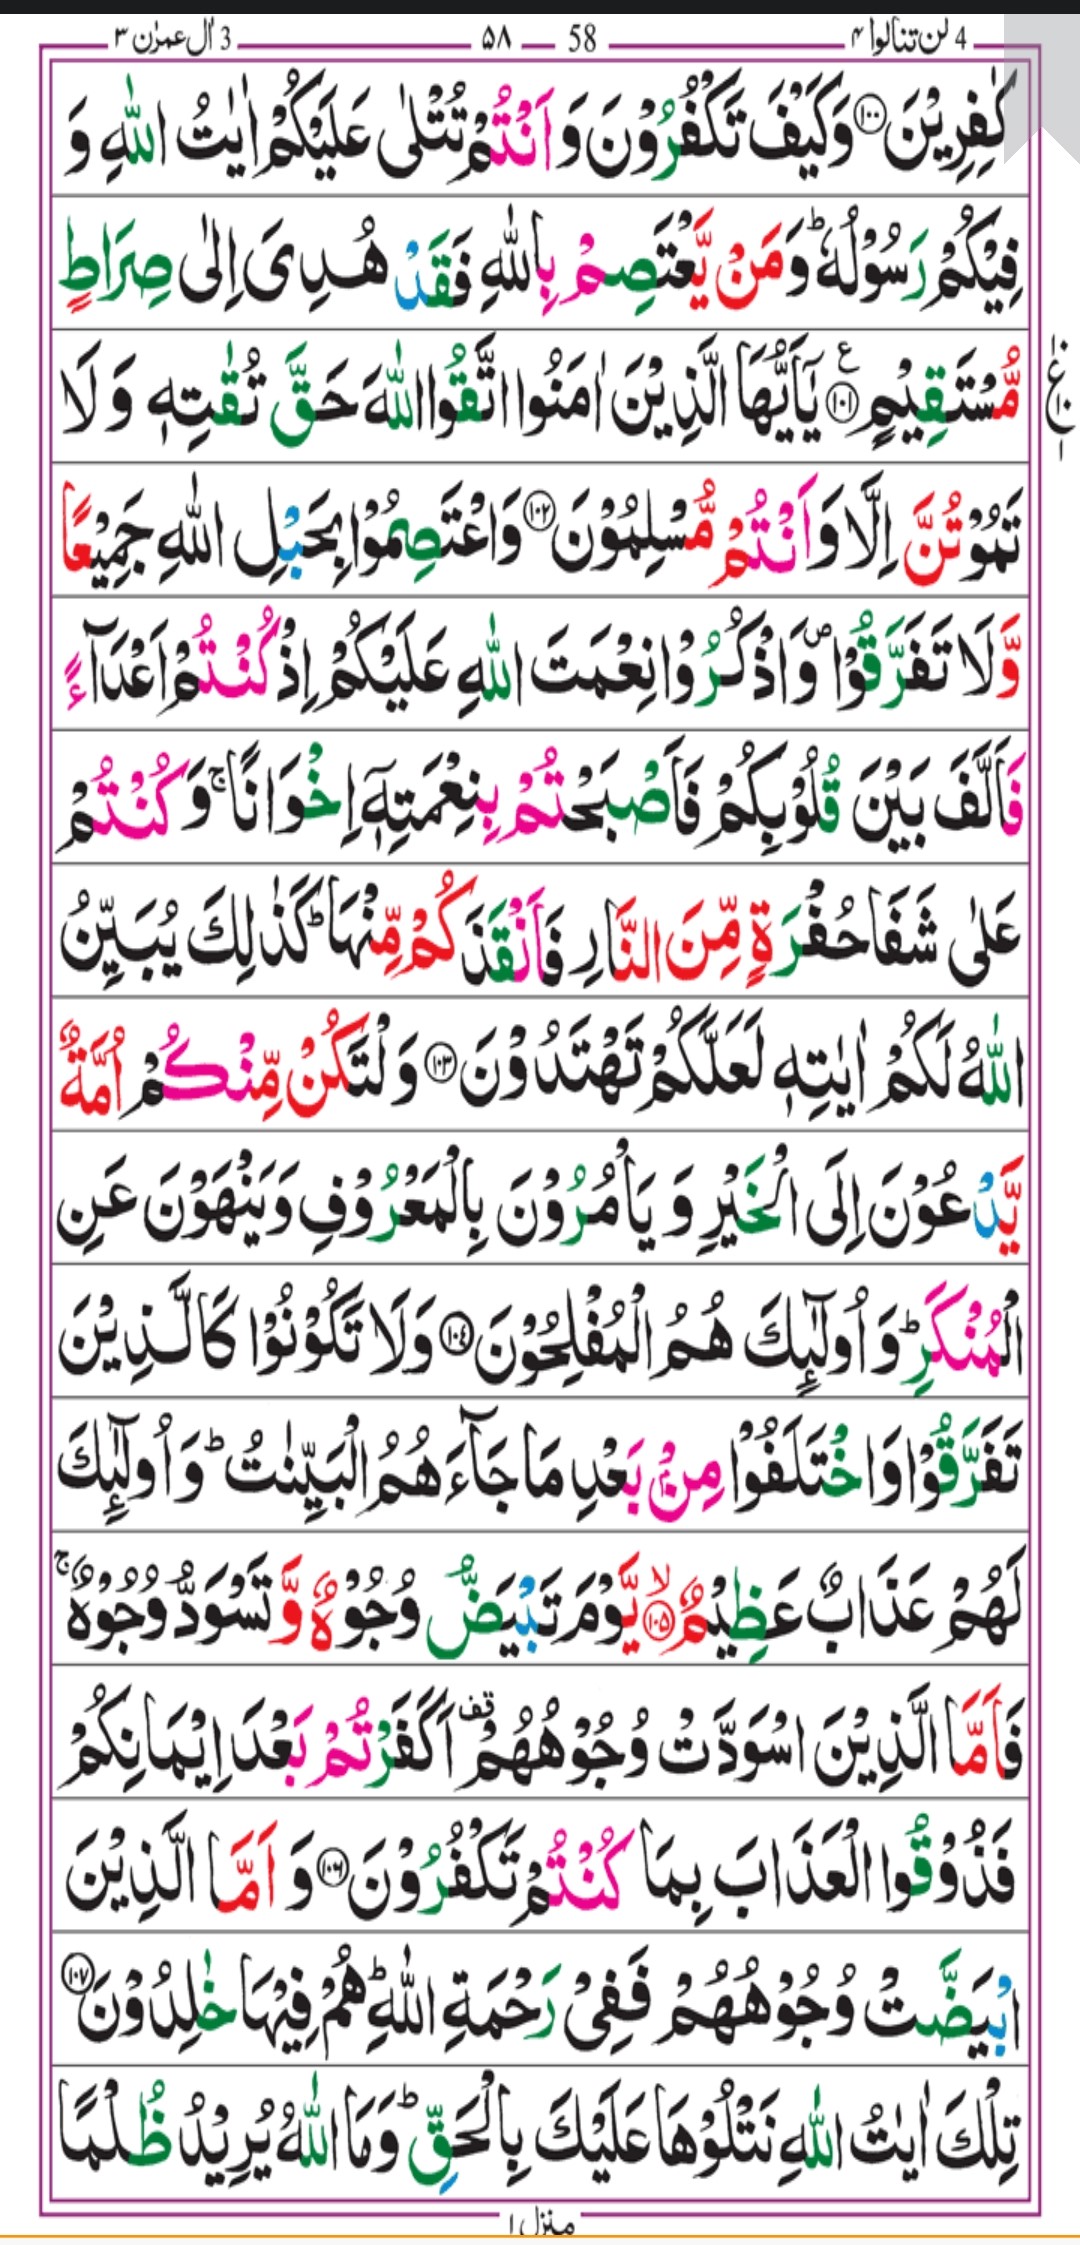 4 لن تنالوا ۴ 58 ۵۸ 3 اٰل عمرٰن ۳
كٰفِرِيْنَ ۝۱۰۰ وَكَيْفَ تَكْفُرُوْنَ وَاَنْتُمْ تُتْلٰى عَلَيْكُمْ اٰيٰتُ اللّٰهِ وَ
فِيْكُمْ رَسُوْلُهٗ ؕ وَمَنْ يَّعْتَصِمْ بِاللّٰهِ فَقَدْ هُدِىَ اِلٰى صِرَاطٍ
مُّسْتَقِيْمٍ ۝۱۰۱ ع يٰۤاَيُّهَا الَّذِيْنَ اٰمَنُوا اتَّقُوا اللّٰهَ حَقَّ تُقٰتِهٖ وَلَا
ع ۱۰ ۱
تَمُوْتُنَّ اِلَّا وَاَنْتُمْ مُّسْلِمُوْنَ ۝۱۰۲ وَاعْتَصِمُوْا بِحَبْلِ اللّٰهِ جَمِيْعًا
وَّلَا تَفَرَّقُوْا ۪ وَاذْكُرُوْا نِعْمَتَ اللّٰهِ عَلَيْكُمْ اِذْ كُنْتُمْ اَعْدَآءً
فَاَلَّفَ بَيْنَ قُلُوْبِكُمْ فَاَصْبَحْتُمْ بِنِعْمَتِهٖۤ اِخْوَانًا ۚ وَكُنْتُمْ
عَلٰى شَفَا حُفْرَةٍ مِّنَ النَّارِ فَاَنْقَذَكُمْ مِّنْهَا ؕ كَذٰلِكَ يُبَيِّنُ
اللّٰهُ لَكُمْ اٰيٰتِهٖ لَعَلَّكُمْ تَهْتَدُوْنَ ۝۱۰۳ وَلْتَكُنْ مِّنْكُمْ اُمَّةٌ
يَّدْعُوْنَ اِلَى الْخَيْرِ وَيَاْمُرُوْنَ بِالْمَعْرُوْفِ وَيَنْهَوْنَ عَنِ
الْمُنْكَرِ ؕ وَاُولٰٓئِكَ هُمُ الْمُفْلِحُوْنَ ۝۱۰۴ وَلَا تَكُوْنُوْا كَالَّذِيْنَ
تَفَرَّقُوْا وَاخْتَلَفُوْا مِنْۢ بَعْدِ مَا جَآءَهُمُ الْبَيِّنٰتُ ؕ وَاُولٰٓئِكَ
لَهُمْ عَذَابٌ عَظِيْمٌ ۝۱۰۵ ۙ يَّوْمَ تَبْيَضُّ وُجُوْهٌ وَّتَسْوَدُّ وُجُوْهٌ ۚ
فَاَمَّا الَّذِيْنَ اسْوَدَّتْ وُجُوْهُهُمْ قف اَكَفَرْتُمْ بَعْدَ اِيْمَانِكُمْ
فَذُوْقُوا الْعَذَابَ بِمَا كُنْتُمْ تَكْفُرُوْنَ ۝۱۰۶ وَاَمَّا الَّذِيْنَ
ابْيَضَّتْ وُجُوْهُهُمْ فَفِىْ رَحْمَةِ اللّٰهِ ؕ هُمْ فِيْهَا خٰلِدُوْنَ ۝۱۰۷
تِلْكَ اٰيٰتُ اللّٰهِ نَتْلُوْهَا عَلَيْكَ بِالْحَقِّ ؕ وَمَا اللّٰهُ يُرِيْدُ ظُلْمًا
منزل ۱